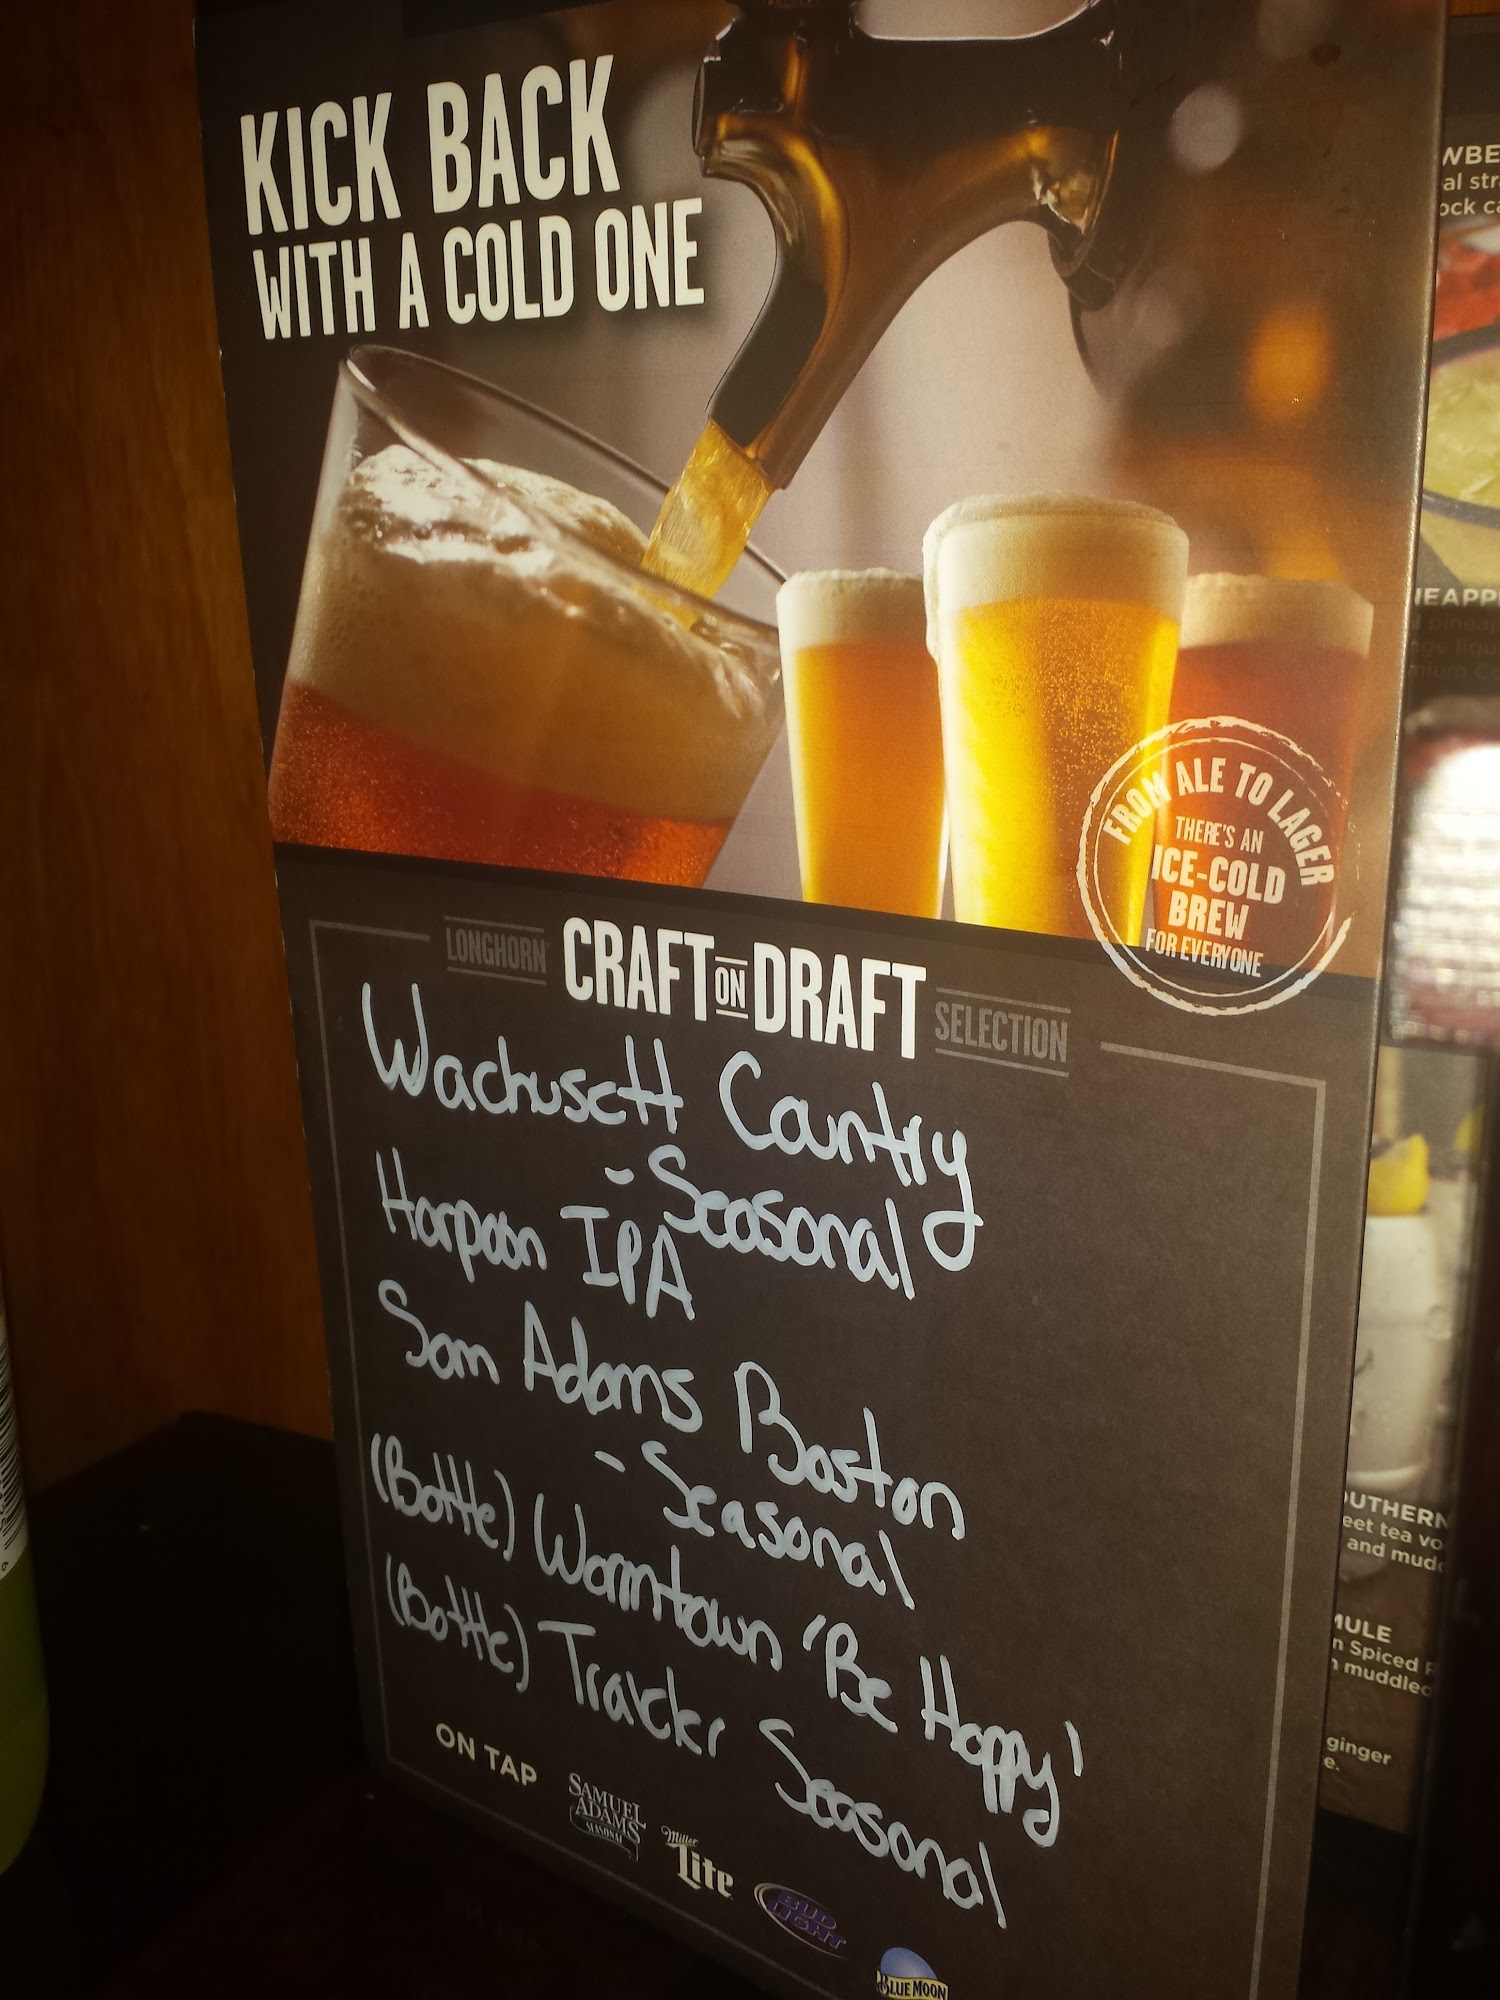 KICK BACK
WITH A COLD ONE
FROM ALE TO LAGER
THERE'S AN
ICE-COLD
BREW
FOR EVERYONE
LONGHORN CRAFT ON DRAFT SELECTION
Wachusett Country
- Seasonal
Harpoon IPA
Sam Adams Boston
- Seasonal
(Bottle) Wormtown 'Be Hoppy'
(Bottle) Traveler Seasonal
ON TAP
SAMUEL
ADAMS
SEASONAL
Miller
Lite
BUD
LIGHT
BLUE MOON
al str
ock ca
pineap
OUTHERN
eet tea vo
and mudd
MULE
n Spiced
muddled
ginger
e.